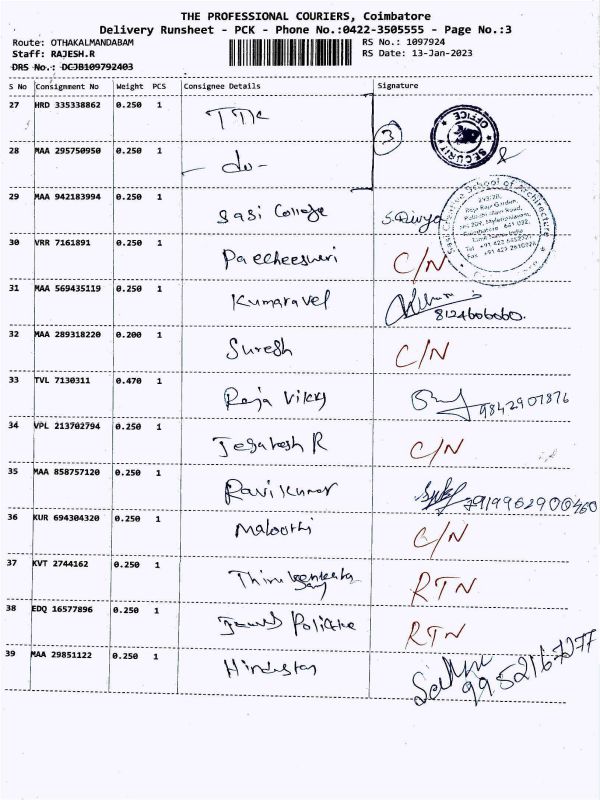 THE PROFESSIONAL COURIERS, Coimbatore
Delivery Runsheet - PCK - Phone No.:0422-3505555 - Page No.:3
Route: OTHAKALMANDABAM RS No.: 1097924
Staff: RAJESH.R RS Date: 13-Jan-2023
DRS No.: DCJB109792403
S No Consignment No Weight PCS Consignee Details Signature
27 HRD 335338862 0.250 1 3
SECURITY OFFICE
28 MAA 295750950 0.250 1 - do -
29 MAA 942183994 0.250 1 Sasi College S. Divya
Creative School of Architecture
30 VRR 7161891 0.250 1 C/N
31 MAA 569435119 0.250 1 Kumaravel
8124606060.
32 MAA 289318220 0.200 1 Suresh C/N
33 TVL 7130311 0.470 1 Raja Vikky 9842907876
34 VPL 213702794 0.250 1 R C/N
35 MAA 858757120 0.250 1 Ravikumar 919962900460
36 KUR 694304320 0.250 1 C/N
37 KVT 2744162 0.250 1 RTN
38 EDQ 16577896 0.250 1 RTN
39 MAA 29851122 0.250 1 9952167277